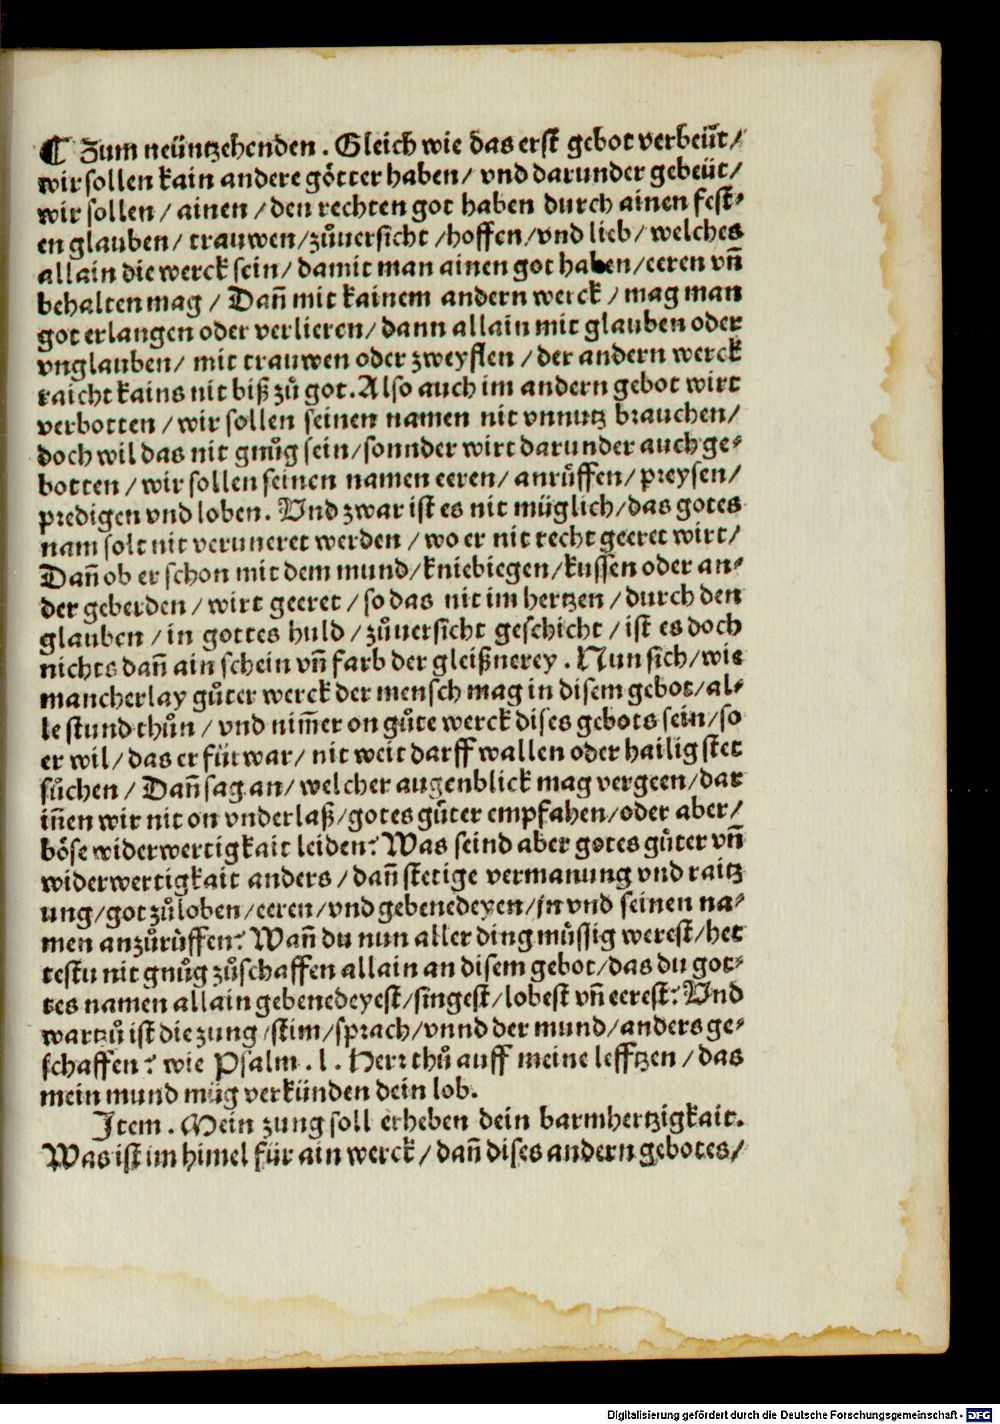 ¶ Zum neüntzehenden . Gleich wie das erst gebot verbeüt/
wir sollen kain andere götter haben/ vnd darunder gebeüt/
wir sollen / ainen / den rechten got haben durch ainen fest⸗
en glauben/ trauwen/zůuersicht /hoffen/vnd lieb/ welches
allain die werck sein/ damit man ainen got haben/eeren vñ
behalten mag / Dañ mit kainem andern werck / mag man
got erlangen oder verlieren/ dann allain mit glauben oder
vnglauben/ mit trauwen oder zweyflen / der andern werck
raicht kains nit biß zů got. Also auch im andern gebot wirt
verbotten / wir sollen seinen namen nit vnnutz brauchen/
doch wil das nit gnůg sein/sonnder wirt darunder auch ge⸗
botten / wir sollen seinen namen eeren/ anrůffen/ preysen/
predigen vnd loben. Vnd zwar ist es nit müglich/das gotes
nam solt nit veruneret werden / wo er nit recht geeret wirt/
Dañ ob er schon mit dem mund/kniebiegen/kussen oder an⸗
der geberden / wirt geeret / so das nit im hertzen / durch den
glauben / in gottes huld / zůuersicht geschicht / ist es doch
nichts dañ ain schein vñ farb der gleißnerey . Nun sich/wie
mancherlay gůter werck der mensch mag in disem gebot/al⸗
le stund thůn / vnd nim̃er on gůte werck dises gebots sein/so
er wil/ das er fürwar/ nit weit darff wallen oder hailig stet
sůchen / Dañ sag an/ welcher augenblick mag vergeen/dar
iñen wir nit on vnderlaß/gotes gůter empfahen/oder aber/
böse widerwertigkait leiden? Was seind aber gotes gůter vñ
widerwertigkait anders / dañ stetige vermanung vnd raitz
ung/got zůloben/eeren/vnd gebenedeyen/jn vnd seinen na⸗
men anzůrůffen? Wañ du nun aller ding můssig werest/het
testu nit gnůg zůschaffen allain an disem gebot/das du got⸗
tes namen allain gebenedeyest/singest/lobest vñ eerest? Vnd
wartzů ist die zung /stim/sprach/vnnd der mund/anders ge⸗
schaffen? wie Psalm . l . Herr thů auff meine lefftzen / das
mein mund müg verkünden dein lob.
Item . Mein zung soll erheben dein barmhertzigkait.
Was ist im himel für ain werck / dañ dises andern gebotes/
Digitalisierung gefördert durch die Deutsche Forschungsgemeinschaft - DFG